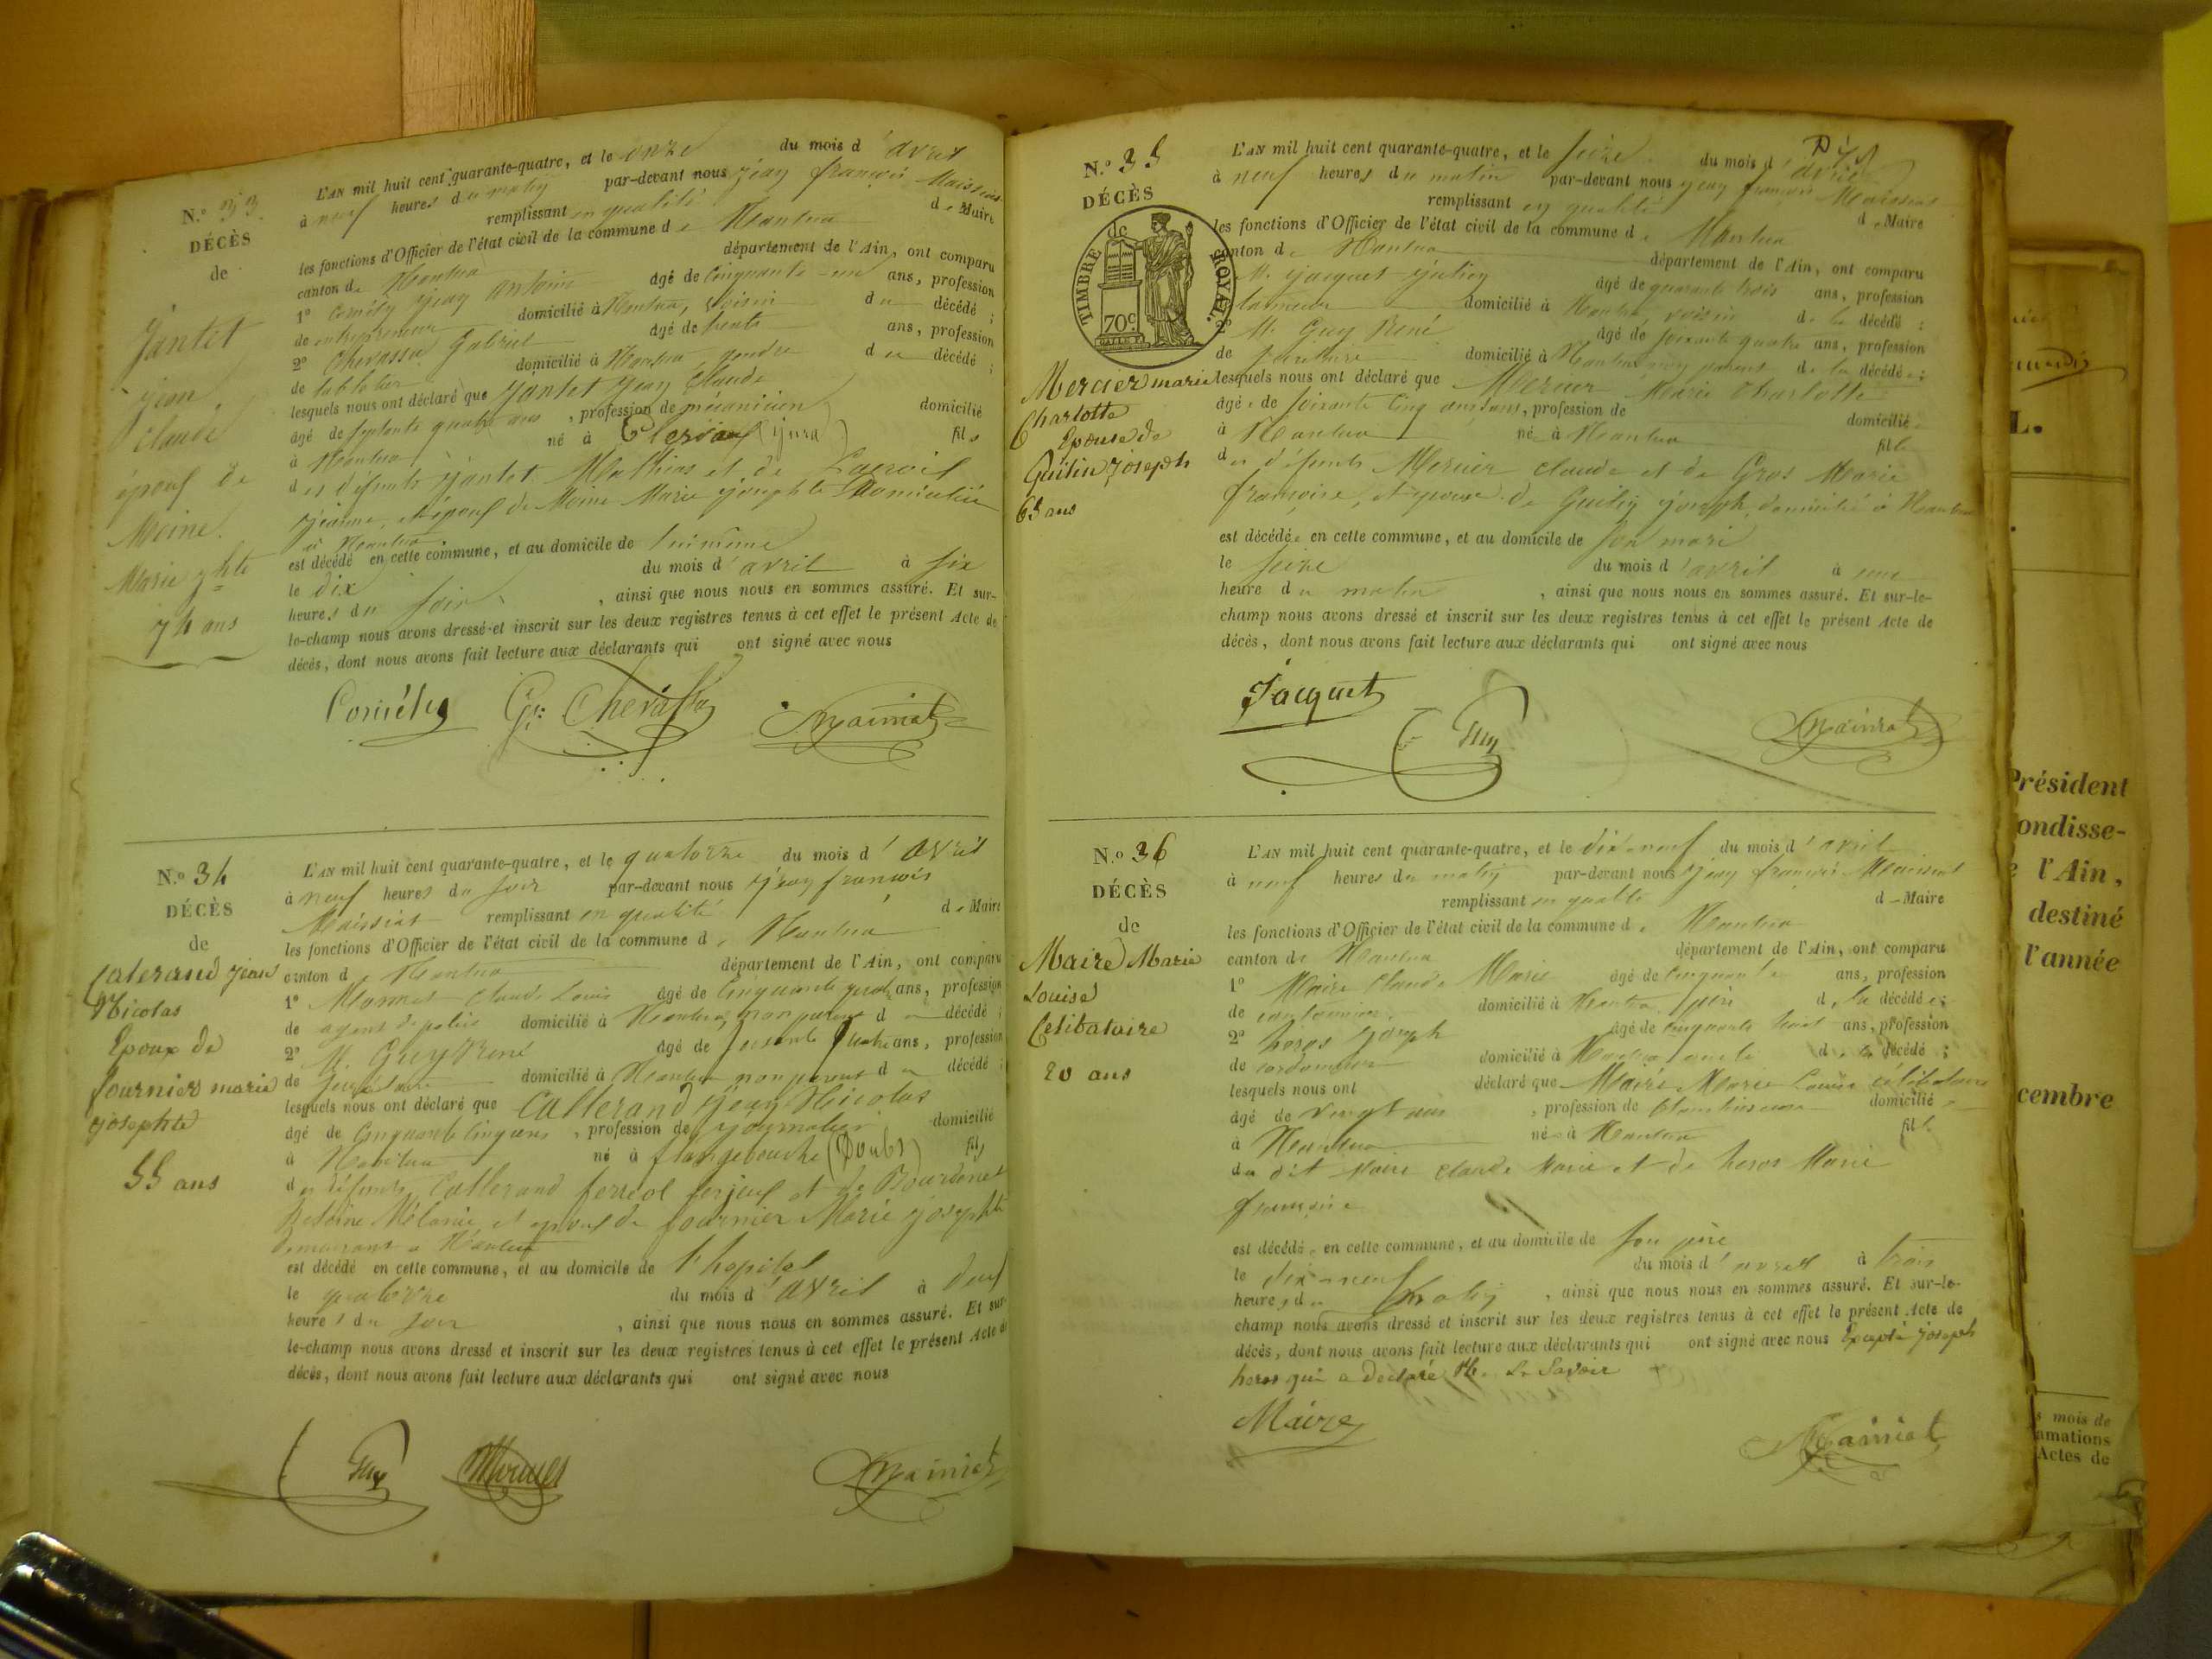 N.º 33
DÉCÈS
de
Jantet
jean
Claude
époux de
Moine
Marie jphte
74 ans
L'AN mil huit cent quarante-quatre, et le onze du mois d'avril
à neuf heures du matin par-devant nous jean françois Maissiat
remplissant en qualité de Maire
les fonctions d'Officier de l'état civil de la commune de Nantua
canton de Nantua département de l'Ain, ont comparu
1º jean antoine agé de cinquante-un ans, profession
de entrepreneur domicilié à Nantua, voisin du décédé ;
2º Chevassu Gabriel agé de trente ans, profession
de domicilié à Nantua gendre du décédé ;
lesquels nous ont déclaré que Jantet jean Claude
agé de septante quatre ans, profession de mécanicien domicilié
à Nantua né à (jura) fils
des défunts jantet Mathias et de Lacroix
jeanne, et époux de Moine Marie josephte Domiciliée
à Nantua
est décédé en cette commune, et au domicile de lui même
le dix du mois d'avril à six
heures du soir, ainsi que nous nous en sommes assuré. Et sur-
le-champ nous avons dressé et inscrit sur les deux registres tenus à cet effet le présent Acte de
décès, dont nous avons fait lecture aux déclarants qui ont signé avec nous
Gel Chevassu Maissiat
N.º 34
DÉCÈS
de
Calerand jean
Nicolas
Epoux de
fournier marie
josephte
55 ans
L'AN mil huit cent quarante-quatre, et le quatorze du mois d'avril
à neuf heures du soir par-devant nous jean françois
Maissiat remplissant en qualité de Maire
les fonctions d'Officier de l'état civil de la commune de Nantua
canton de Nantua département de l'Ain, ont comparu
1º Claude Louis agé de Cinquante quatre ans, profession
de agent de police domicilié à Nantua, non parent du décédé ;
2º M. Guy René agé de soixante quatre ans, profession
de secrétaire domicilié à Nantua non parent du décédé ;
lesquels nous ont déclaré que Callerand jean Nicolas
agé de Cinquante cinq ans, profession de journalier domicilié
à Nantua né à flangebouche (Doubs) fils
des défunts Callerand ferreol ferjeux et de Bourdenet
Mélanie, et époux de fournier Marie josephte
demeurant à Nantua
est décédé en cette commune, et au domicile de l'hopital
le quatorze du mois d'avril à deux
heures du soir, ainsi que nous nous en sommes assuré. Et sur-
le-champ nous avons dressé et inscrit sur les deux registres tenus à cet effet le présent Acte de
décès, dont nous avons fait lecture aux déclarants qui ont signé avec nous
Guy Maissiat
N.º 35
DÉCÈS
de
TIMBRE ROYAL
70 c.
Mercier marie
Charlotte
Epouse de
Guitin joseph
65 ans
L'AN mil huit cent quarante-quatre, et le seize du mois d'avril
à neuf heures du matin par-devant nous jean françois Maissiat
remplissant en qualité de Maire
les fonctions d'Officier de l'état civil de la commune de Nantua
canton de Nantua département de l'Ain, ont comparu
M. jacquet agé de quarante trois ans, profession
domicilié à Nantua, voisin de la décédé ;
M. Guy René agé de soixante quatre ans, profession
de secrétaire domicilié à Nantua non parent de la décédée ;
lesquels nous ont déclaré que Mercier Marie Charlotte
agée de soixante cinq ans, profession de domicilié
à Nantua née à Nantua fille
des défunts Mercier Claude et de Gros Marie
françoise, et épouse de Guitin joseph, domicilié à Nantua
est décédée en cette commune, et au domicile de son mari
le seize du mois d'avril à une
heure du matin, ainsi que nous nous en sommes assuré. Et sur-le-
champ nous avons dressé et inscrit sur les deux registres tenus à cet effet le présent Acte de
décès, dont nous avons fait lecture aux déclarants qui ont signé avec nous
Jacquet Guy Maissiat
N.º 36
DÉCÈS
de
Maire Marie
Louise
Celibataire
20 ans
L'AN mil huit cent quarante-quatre, et le dix-neuf du mois d'avril
à neuf heures du matin par-devant nous jean françois Maissiat
remplissant en qualité de Maire
les fonctions d'Officier de l'état civil de la commune de Nantua
canton de Nantua département de l'Ain, ont comparu
1º Maire Claude Marie agé de cinquante ans, profession
de domicilié à Nantua père de la décédée ;
2º heros joseph agé de cinquante huit ans, profession
de cordonnier domicilié à Nantua oncle de la décédé ;
lesquels nous ont déclaré que Maire Marie Louise célibataire
agé de vingt ans, profession de domicilié
à Nantua née à Nantua fille
du dit Maire Claude Marie et de heros Marie
françoise
est décédée en cette commune, et au domicile de son père
le dix-neuf du mois d'avril à trois
heures du matin, ainsi que nous nous en sommes assuré. Et sur-le-
champ nous avons dressé et inscrit sur les deux registres tenus à cet effet le présent Acte de
décès, dont nous avons fait lecture aux déclarants qui ont signé avec nous Excepté joseph
heros qui a déclaré ne le savoir
Maire Maissiat
Président
ondisse-
l'Ain,
destiné
l'année
cembre
s mois de
amations
Actes de